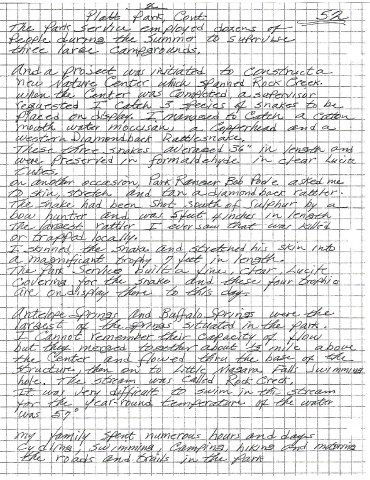 Platt Park, Cont. 52
The Park Service employed dozens of
people during the Summer to supervise
three large Campgrounds.
And a project was initiated to construct a
new Nature Center which spanned Rock Creek.
When the Center was Completed a supervisor
requested I Catch 3 species of snakes to be
placed on display. I managed to Catch a cotton
mouth water moccasin, a Copperhead and a
Western Diamondback Rattlesnake.
These three snakes averaged 36" in length and
were preserved in formaldehyde in clear Lucite
tubes.
On another occasion, Park Ranger Bob Poole asked me
to skin, stretch and tan a diamondback rattler.
The snake had been shot south of Sulphur by a
bow hunter and was 5 feet 4 inches in length
the largest rattler I ever saw that was killed
or trapped locally.
I skinned the snake and stretched his skin into
a magnificant trophy 7 feet in length.
The Park Service built a fine, clear, Lucite
Covering for the snake and these four trophies
are on display there to this day.
Antelope Springs and Buffalo Springs were the
largest of the springs situated in the park.
I Cannot remember their Capacity of flow
but they merged together about 1/3 mile above
the Center and flowed thru the base of the
structure, then on to Little Niagara Falls Swimming
hole. The stream was called Rock Creek.
It was very difficult to swim in this stream
for the year-round temperature of the water
was 57°
My family spent numerous hours and days
Cycling, swimming, Camping, hiking and motoring
the roads and trails in the Park